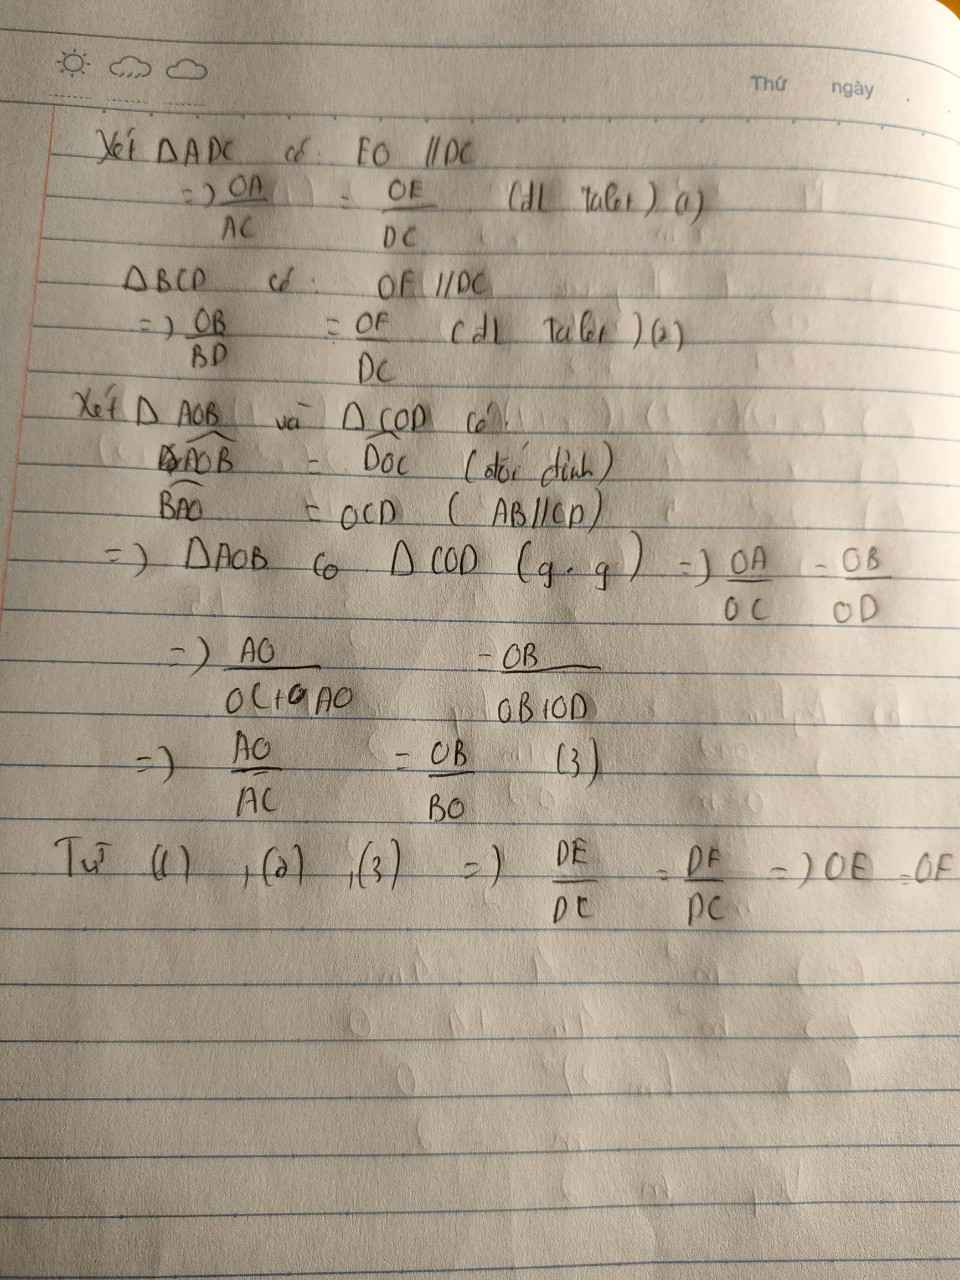 Thứ ngày
Xét ΔADC có: EO // DC
=> OA/AC = OE/DC (đL Talet) (1)
ΔBCD có: OF // DC
=> OB/BD = OF/DC (đL Talet) (2)
Xét Δ AOB và Δ COD có:
AOB = DOC (đối đỉnh)
BAO = OCD (AB//CD)
=> ΔAOB ∽ ΔCOD (g.g) => OA/OC = OB/OD
=> AO/OC+AO = OB/OB+OD
=> AO/AC = OB/BO (3)
Từ (1), (2), (3) => DE/DC = DF/DC => OE = OF